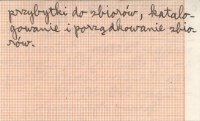 przybytki do zbiorów, katalo-
gowanie i porządkowanie zbio-
rów.